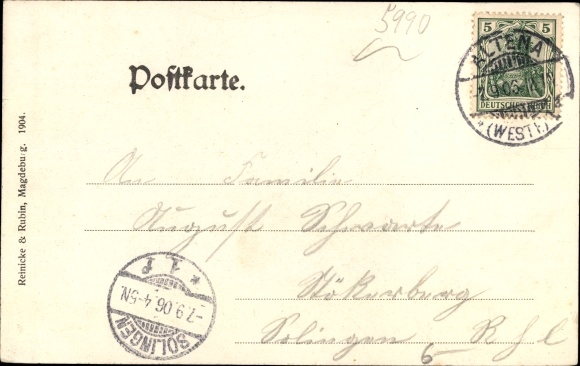 5990
5
ALTENA
.9.06.
DEUTSCHES REICH
* (WESTF.)
Postkarte.
Reinicke & Rubin, Magdeburg. 1904.
An Familie
August Schwarte
Stökerberg
Solingen
6
* 1 f
-7.9.06.4-5N.
SOLINGEN